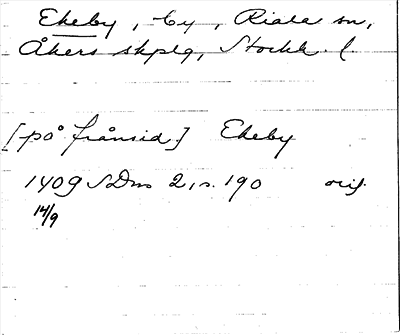 Ekeby, by, Riala sn,
Åkers skplg, Stockh. l.
[på frånsid.] Ekeby
1409 SDns 2, s. 190 orig.
14/9